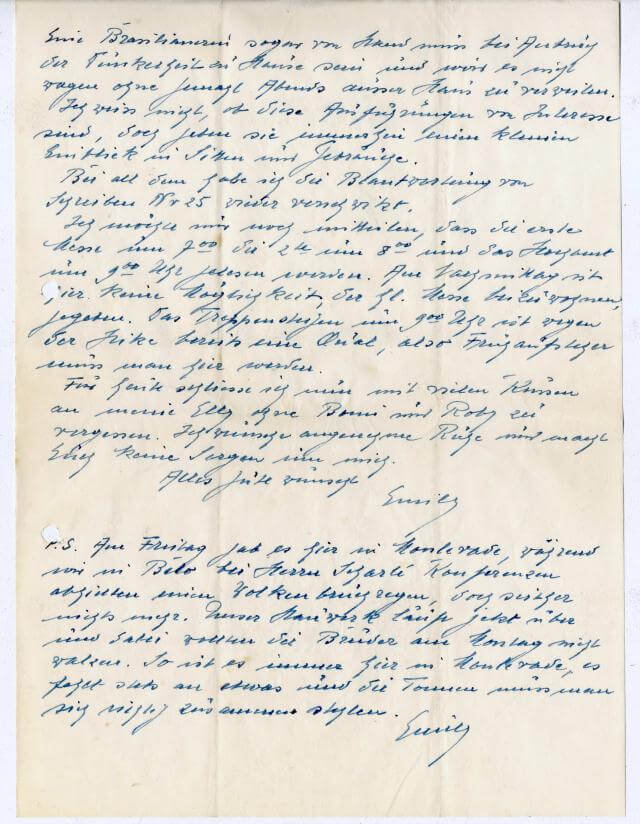 Eine Brasilianerin sogar von Stand muss bei Anbruch
der Dunkelheit zu Hause sein und wird es nicht
wagen ohne jemand Abends ausser Haus zu verweilen.
Ich weiss nicht, ob diese Ausführungen von Interesse
sind, doch geben sie immerhin einen kleinen
Einblick in Sitten und Gebräuche.
Bei all dem habe ich die Beantwortung von
Schreiben Nr 25 wieder verschwitzt.
Ich möchte nur noch mitteilen, dass die erste
Messe um 7⁰⁰ die 2te um 8⁰⁰ und das Hochamt
um 9⁰⁰ Uhr gelesen werden. Am Nachmittag ist
hier keine Möglichkeit, der hl. Messe beizuwohnen,
gegeben. Das Treppensteigen um 9⁰⁰ Uhr ist wegen
der Hitze bereits eine Qual, also Frühaufsteher
muss man hier werden.
Für heute schliesse ich nun mit vielen Küssen
an meine Elly ohne Bomi und Roby zu
vergessen. Ich wünsche angenehme Ruhe und macht
Euch keine Sorgen um mich.
Alles Gute wünscht
Emily
P.S. Am Freitag gab es hier in Monlevade, während
wir in Belo bei Herrn Scharlé Konferenzen
abhielten einen Wolkenbruchregen, doch seither
nichts mehr. Unser Hauwerk läuft jetzt über
und dabei wollten die Brüder am Montag nicht
walzen. So ist es immer hier in Monlevade, es
fehlt stets an etwas und die Tonnen muss man
sich richtig zusammen stehlen.
Emily